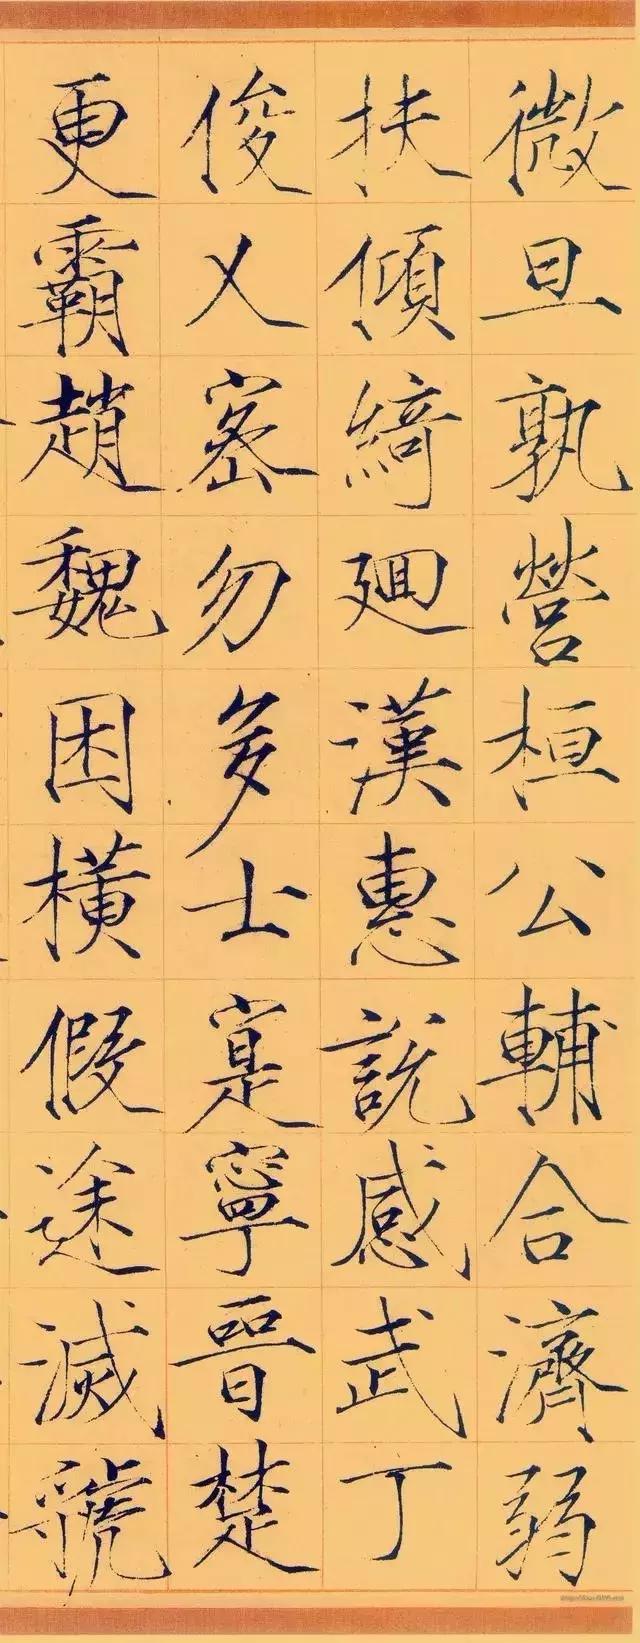 微旦孰營桓公輔合濟弱
扶傾綺廻漢惠說感武丁
俊乂密勿多士寔寧晉楚
更霸趙魏困橫假途滅虢